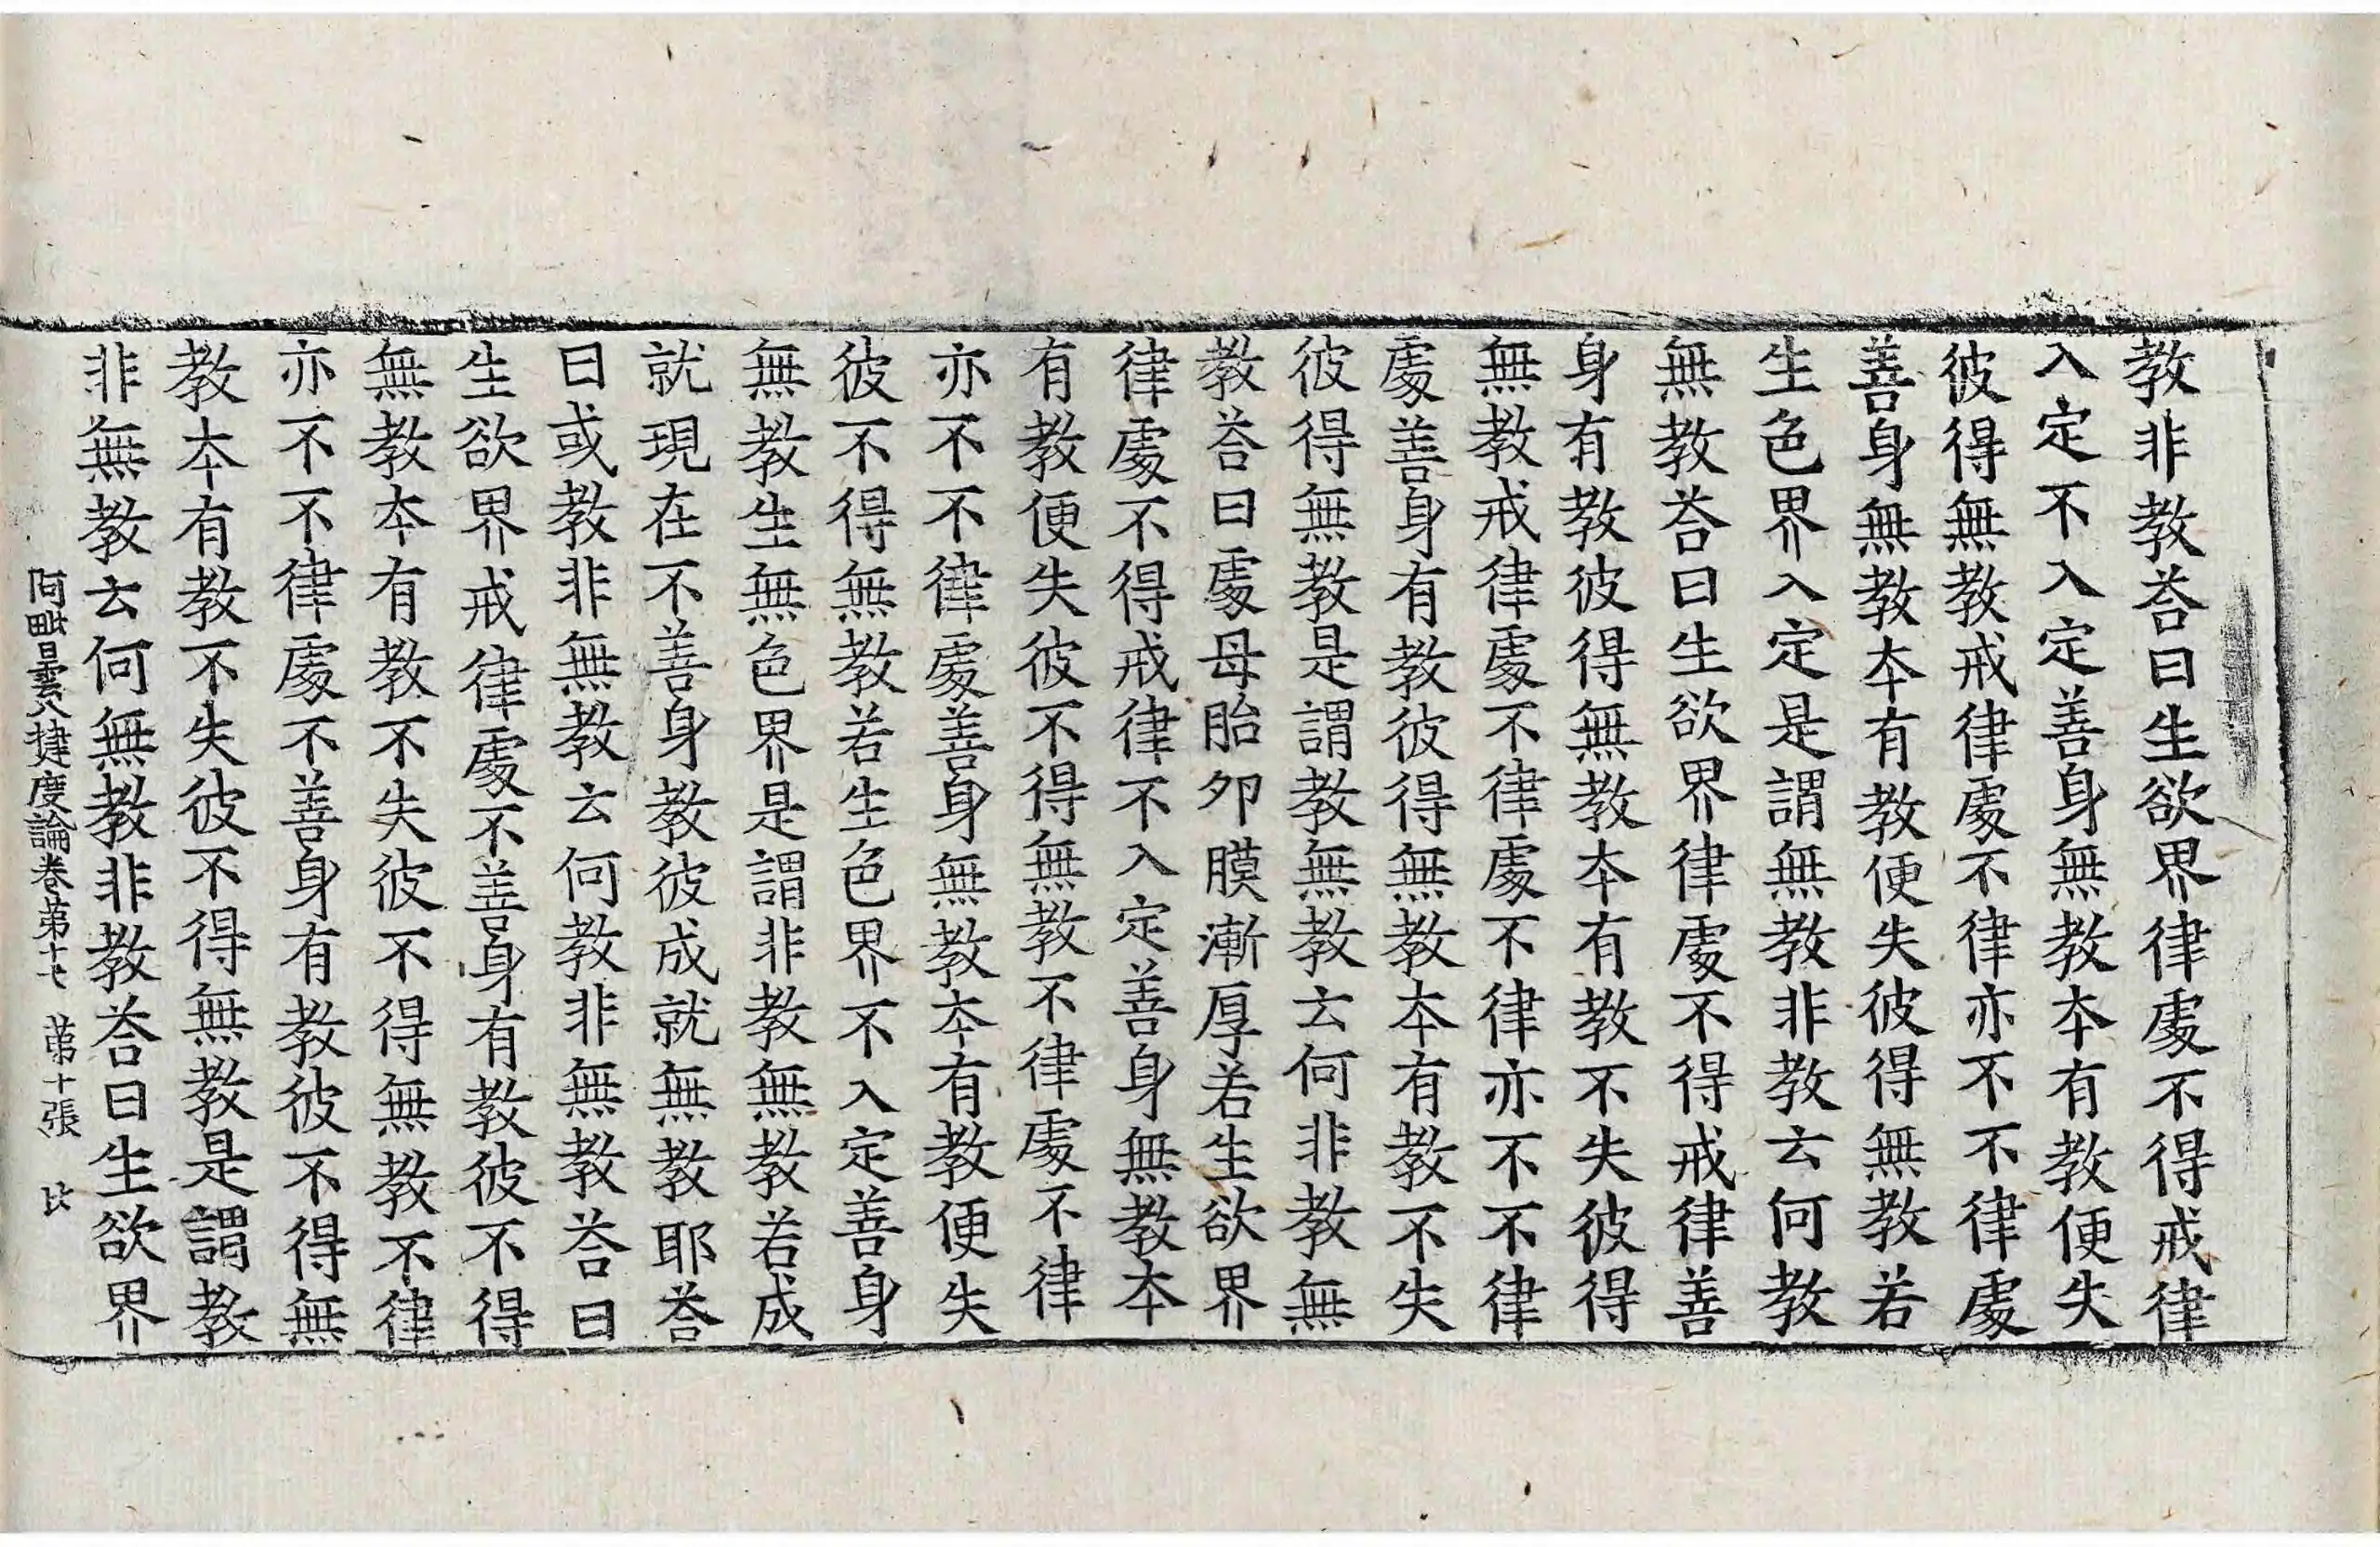 教非教荅曰生欲界律處不得戒律
入定不入定善身無教本有教便失
彼得無教戒律處不律亦不不律處
善身無教本有教便失彼得無教若
生色界入定是謂無教非教云何教
無教荅曰生欲界律處不得戒律善
身有教彼得無教本有教不失彼得
無教戒律處不律處不律亦不不律
處善身有教彼得無教本有教不失
彼得無教是謂教無教云何非教無
教荅曰處母胎夘膜漸厚若生欲界
律處不得戒律不入定善身無教本
有教便失彼不得無教不律處不律
亦不不律處善身無教本有教便失
彼不得無教若生色界不入定善身
無教生無色界是謂非教無教若成
就現在不善身教彼成就無教耶荅
曰或教非無教云何教非無教荅曰
生欲界戒律處不善身有教彼不得
無教本有教不失彼不得無教不律
亦不不律處不善身有教彼不得無
教本有教不失彼不得無教是謂教
非無教云何無教非教荅曰生欲界
阿毗曇八揵度論卷第十七 第十張 比